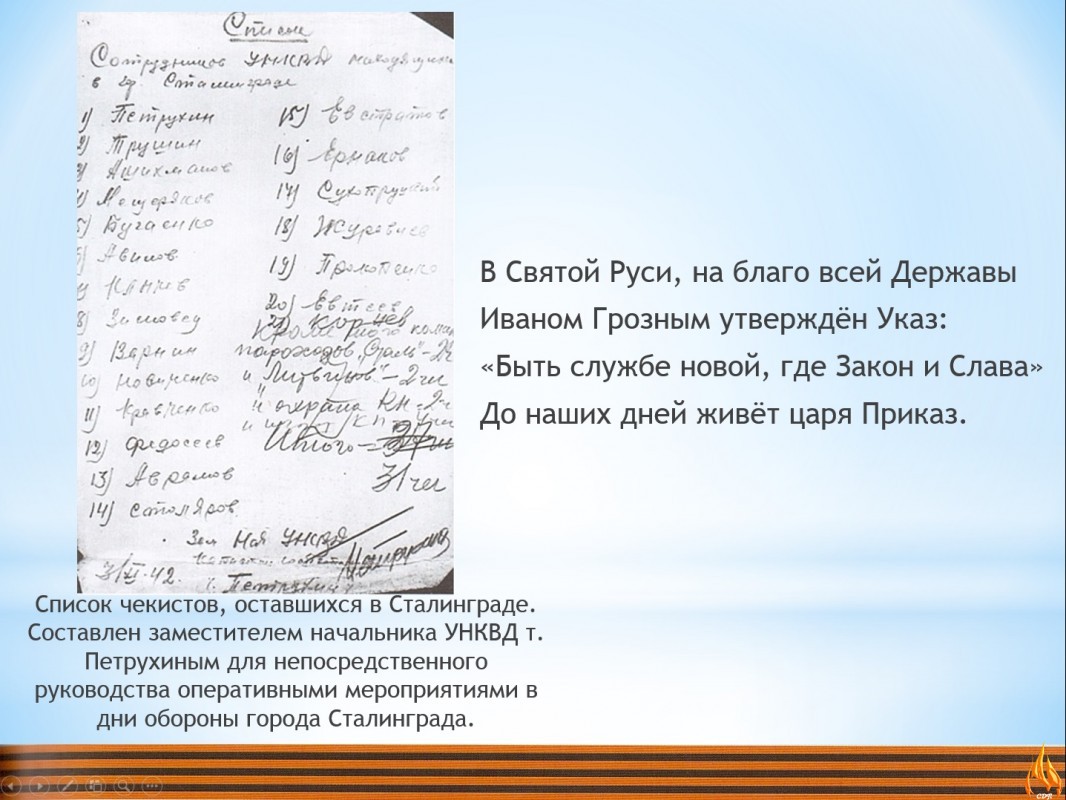 Список
Сотрудников УНКВД находящихся
в гор. Сталинграде
1) Петрухин
2) Трушин
3) Ашихманов
4) Мещеряков
5) Бугаенко
6) Авилов
8) Зимовец
9) Варнин
10) Новиченко
11) Кравченко
12) Федосеев
13) Аврамов
14) Столяров
15) Евстратов
16) Ермаков
17) Сухоруцкий
18) Журавлев
19) Прокопенко
20) Евтеев
Кроме того коман
пароходов „Ураль" - 2 ч
и „Литвинов" - 2 чел
и охрана КП - 2 ч
Итого -
31 чел
Зам Нач УНКВД
Петрухин
31/ 42.
Список чекистов, оставшихся в Сталинграде.
Составлен заместителем начальника УНКВД т.
Петрухиным для непосредственного
руководства оперативными мероприятиями в
дни обороны города Сталинграда.
В Святой Руси, на благо всей Державы
Иваном Грозным утверждён Указ:
«Быть службе новой, где Закон и Слава»
До наших дней живёт царя Приказ.